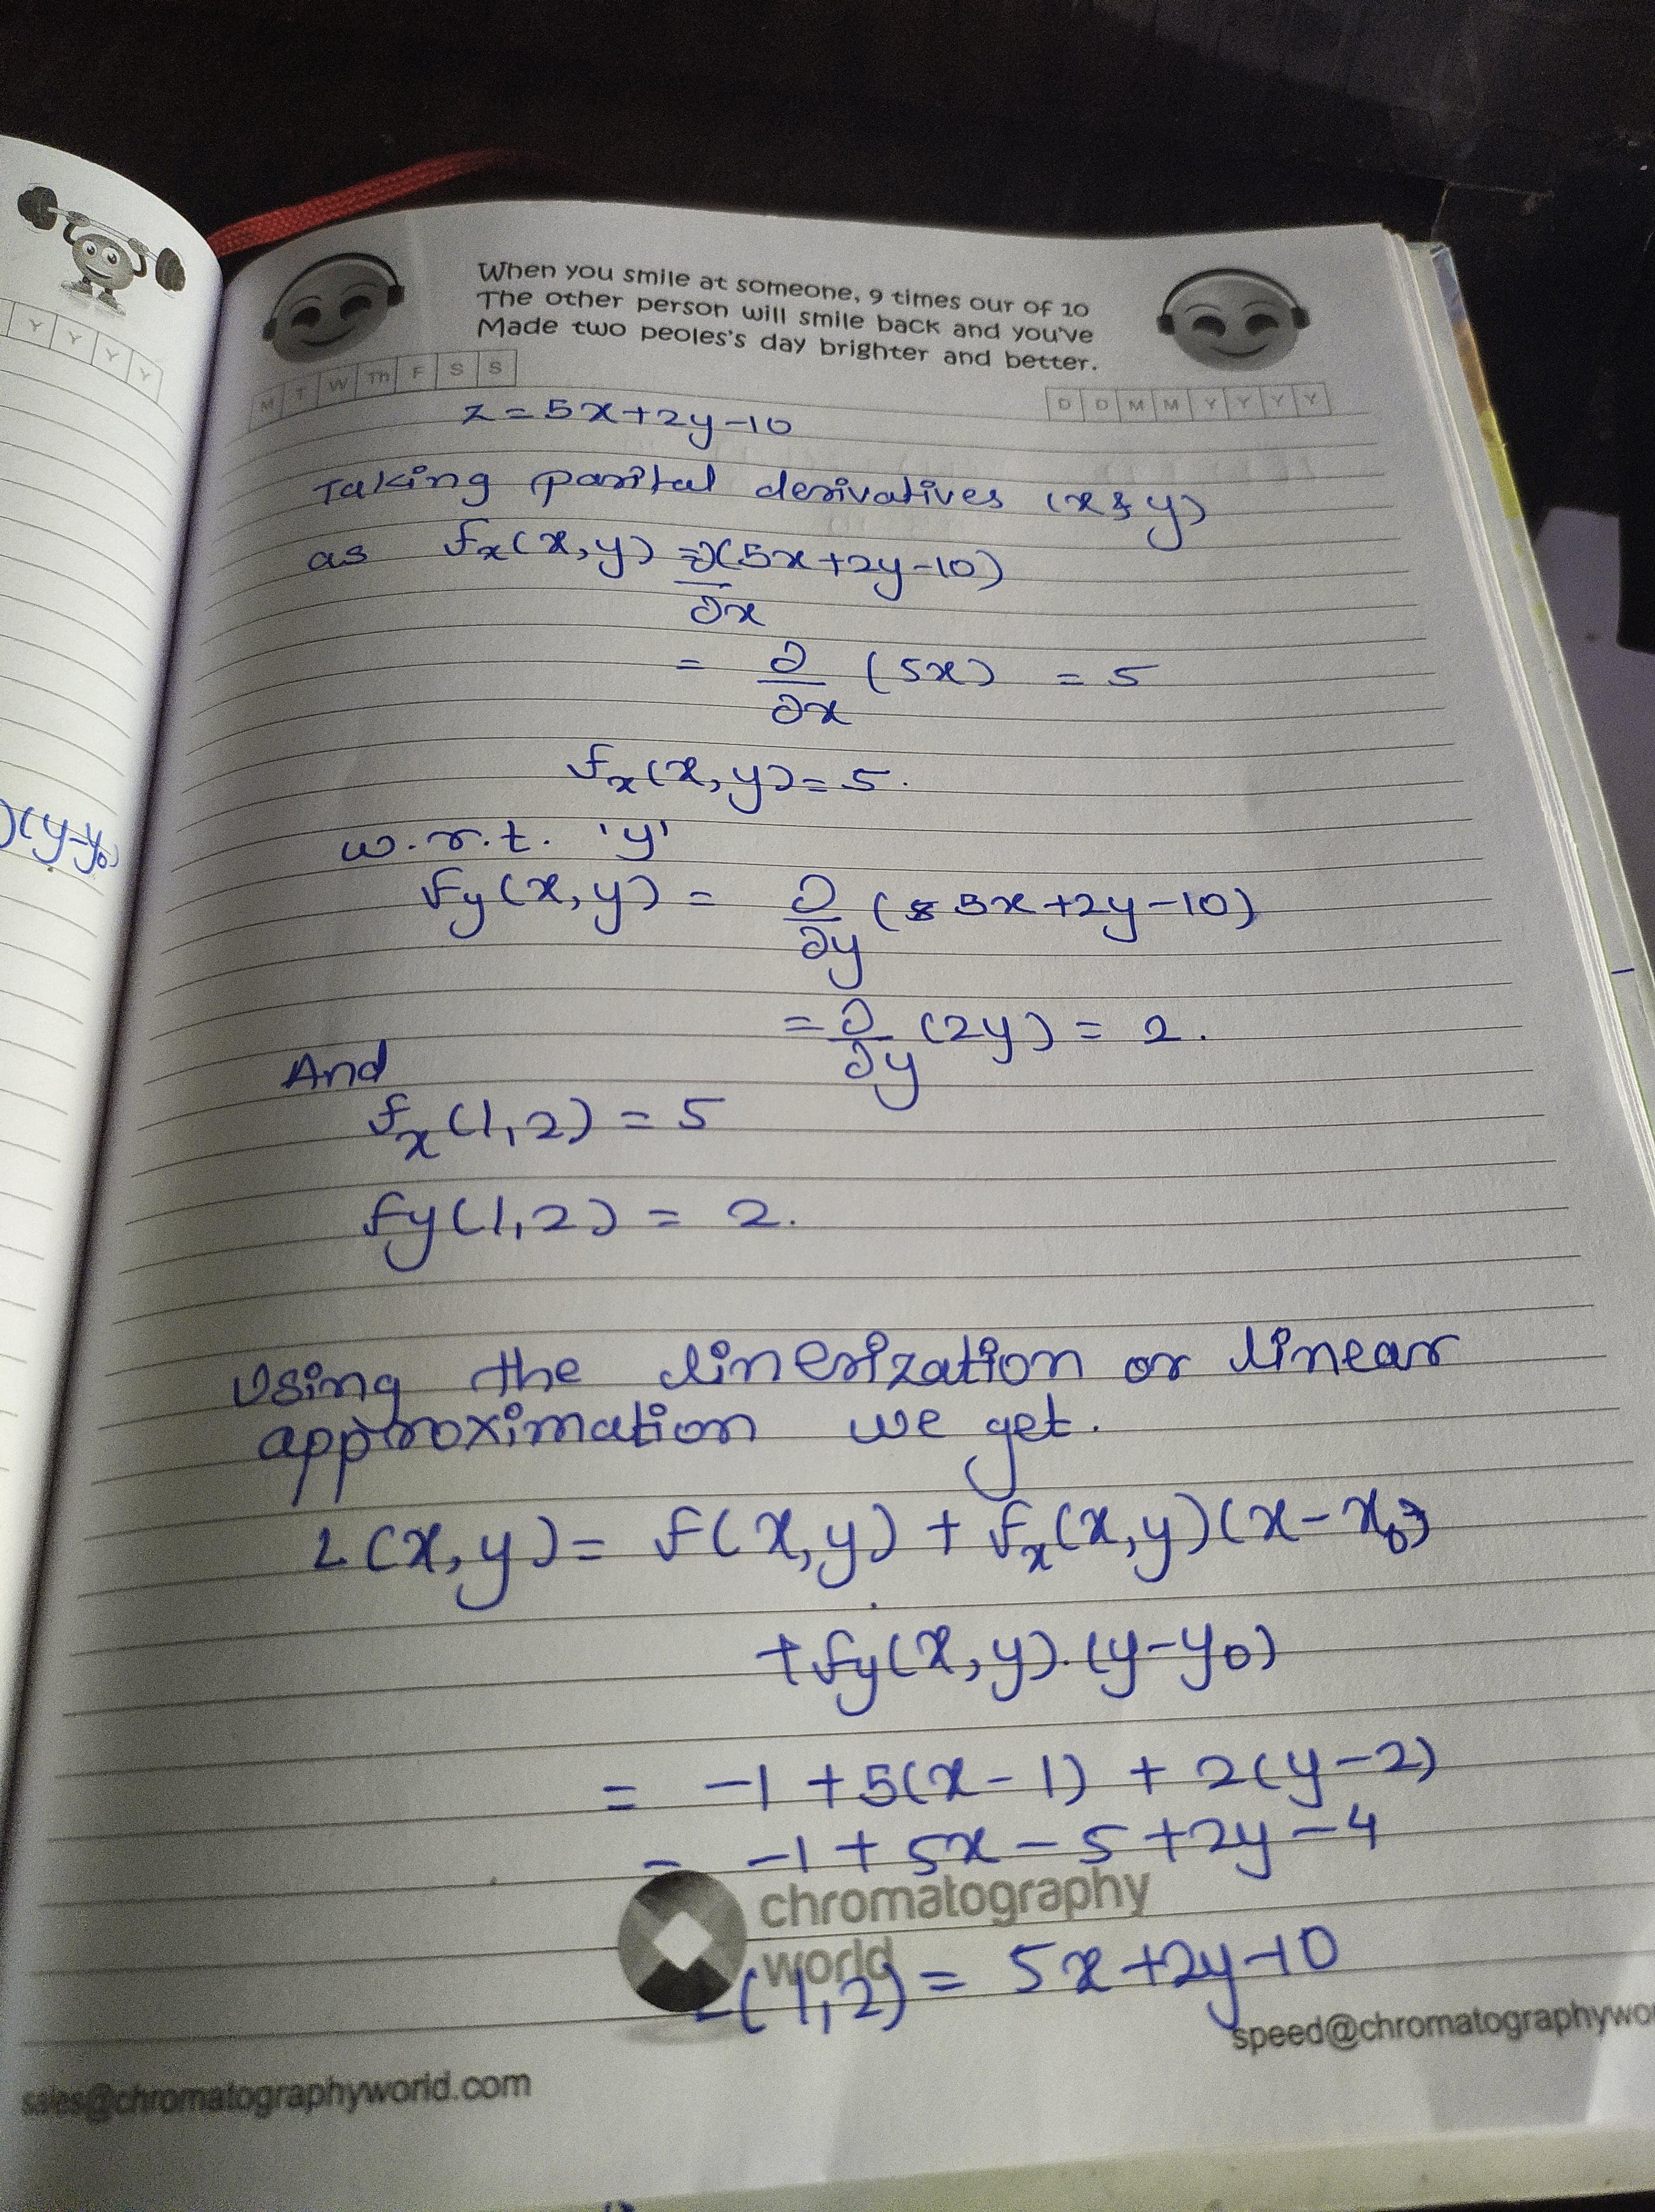 Y Y Y Y
)(y-y₀)
When you smile at someone, 9 times our of 10
The other person will smile back and you've
Made two peoles's day brighter and better.
M T W Th F S S
D D M M Y Y Y Y
z = 5x+2y-10
Taking parital derivatives (x & y)
as fₓ(x,y) = ∂(5x+2y-10)
∂x
= ∂/∂x (5x) = 5
fₓ(x,y) = 5.
w.r.t. 'y'
fy(x,y) = ∂/∂y (5x+2y-10)
= ∂/∂y (2y) = 2.
And
fₓ(1,2) = 5
fy(1,2) = 2.
Using the linerization or linear
approximation we get.
L(x,y) = f(x,y) + fₓ(x,y)(x-x₀)
+fy(x,y).(y-y₀)
= -1+5(x-1) + 2(y-2)
= -1+5x-5+2y-4
chromatography
world
(1,2) = 5x+2y-10
speed@chromatographywor
sales@chromatographyworld.com